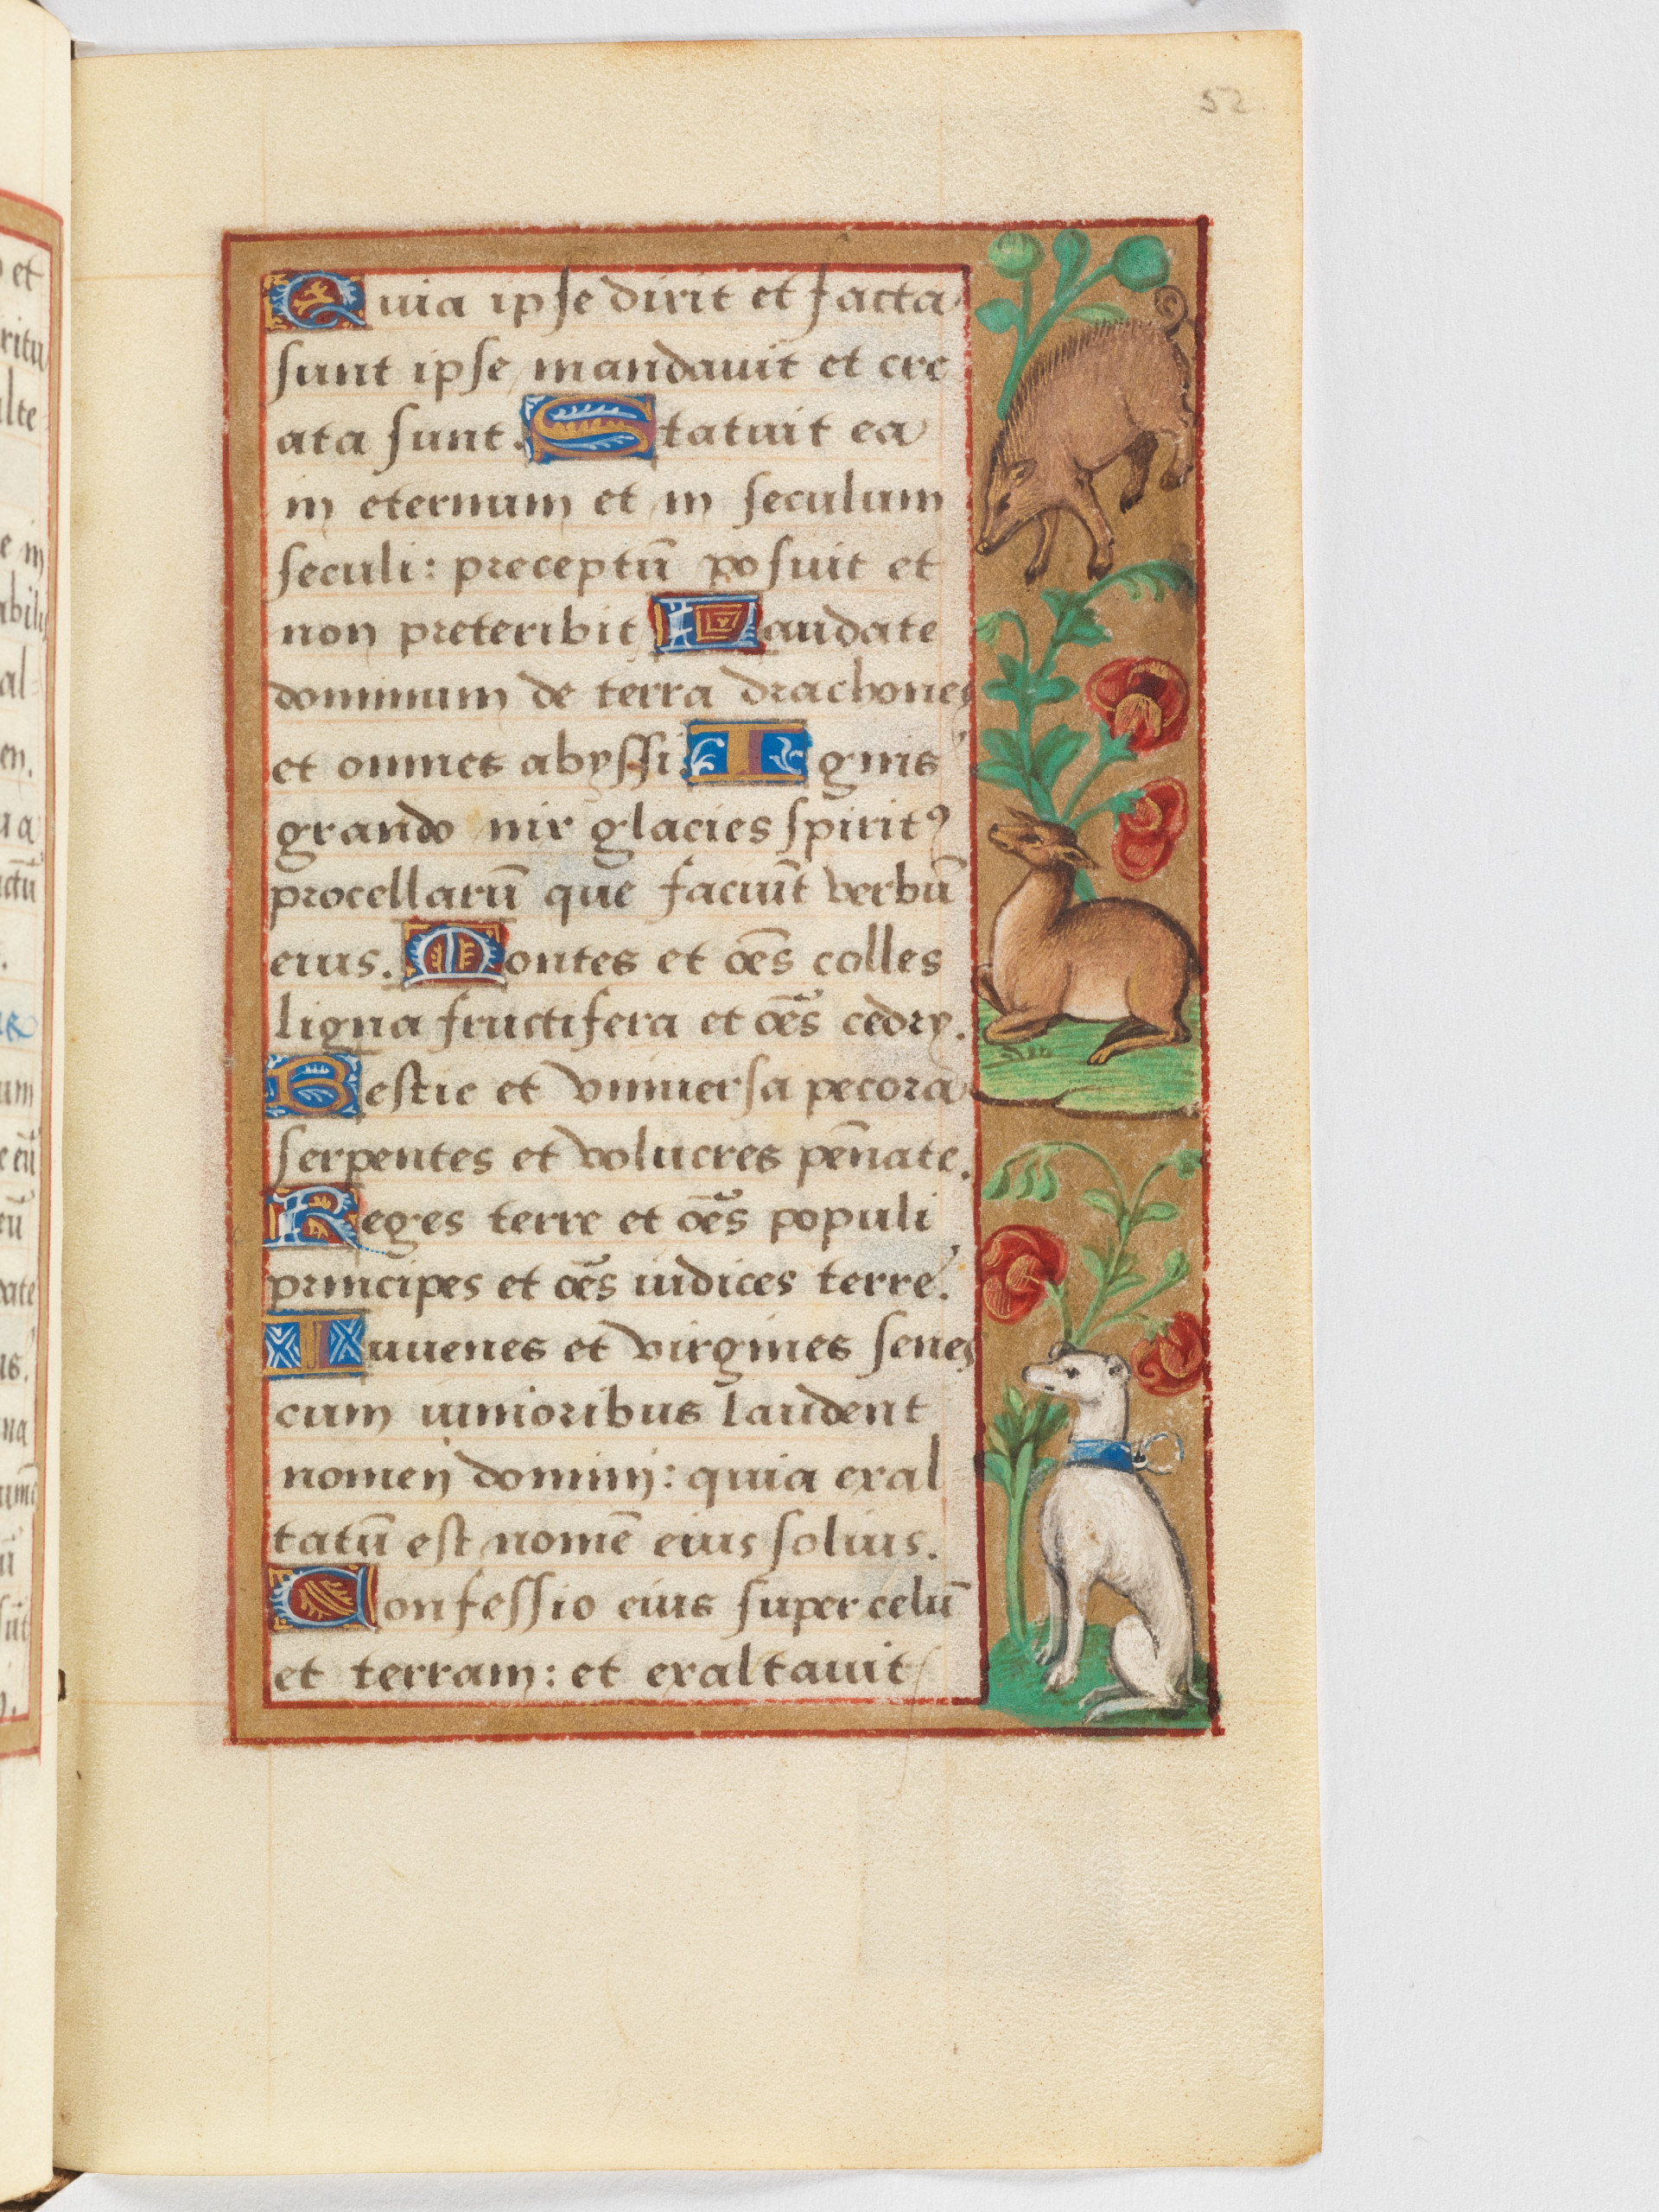 52
Quia ipse dixit et facta
sunt ipse mandauit et cre
ata sunt. Statuit ea
in eternum et in seculum
seculi: preceptū posuit et
non preteribit Laudate
dominum de terra drachones
et omnes abyssi. Ignis
grando nix glacies spiritꝰ
procellarū que faciūt verbū
eius. Montes et oēs colles
ligna fructifera et oēs cedry.
Bestie et vniuersa pecora
serpentes et volucres pēnate.
Reges terre et oēs populi
principes et oēs iudices terre.
Iuuenes et virgines senes
cum iunioribus laudent
nomen domini: quia exal
tatū est nomē eius solius.
Confessio eius super celū
et terram: et exaltauit